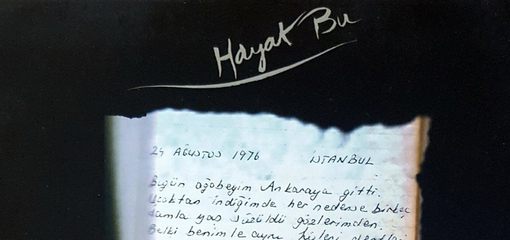 Hayat Bu
24 AĞUSTOS 1976 İSTANBUL
Bugün ağabeyim Ankaraya gitti.
Uçaktan indiğimde her nedense birkaç
damla yaş süzüldü gözlerimden.
Belki benimle aynı hisleri